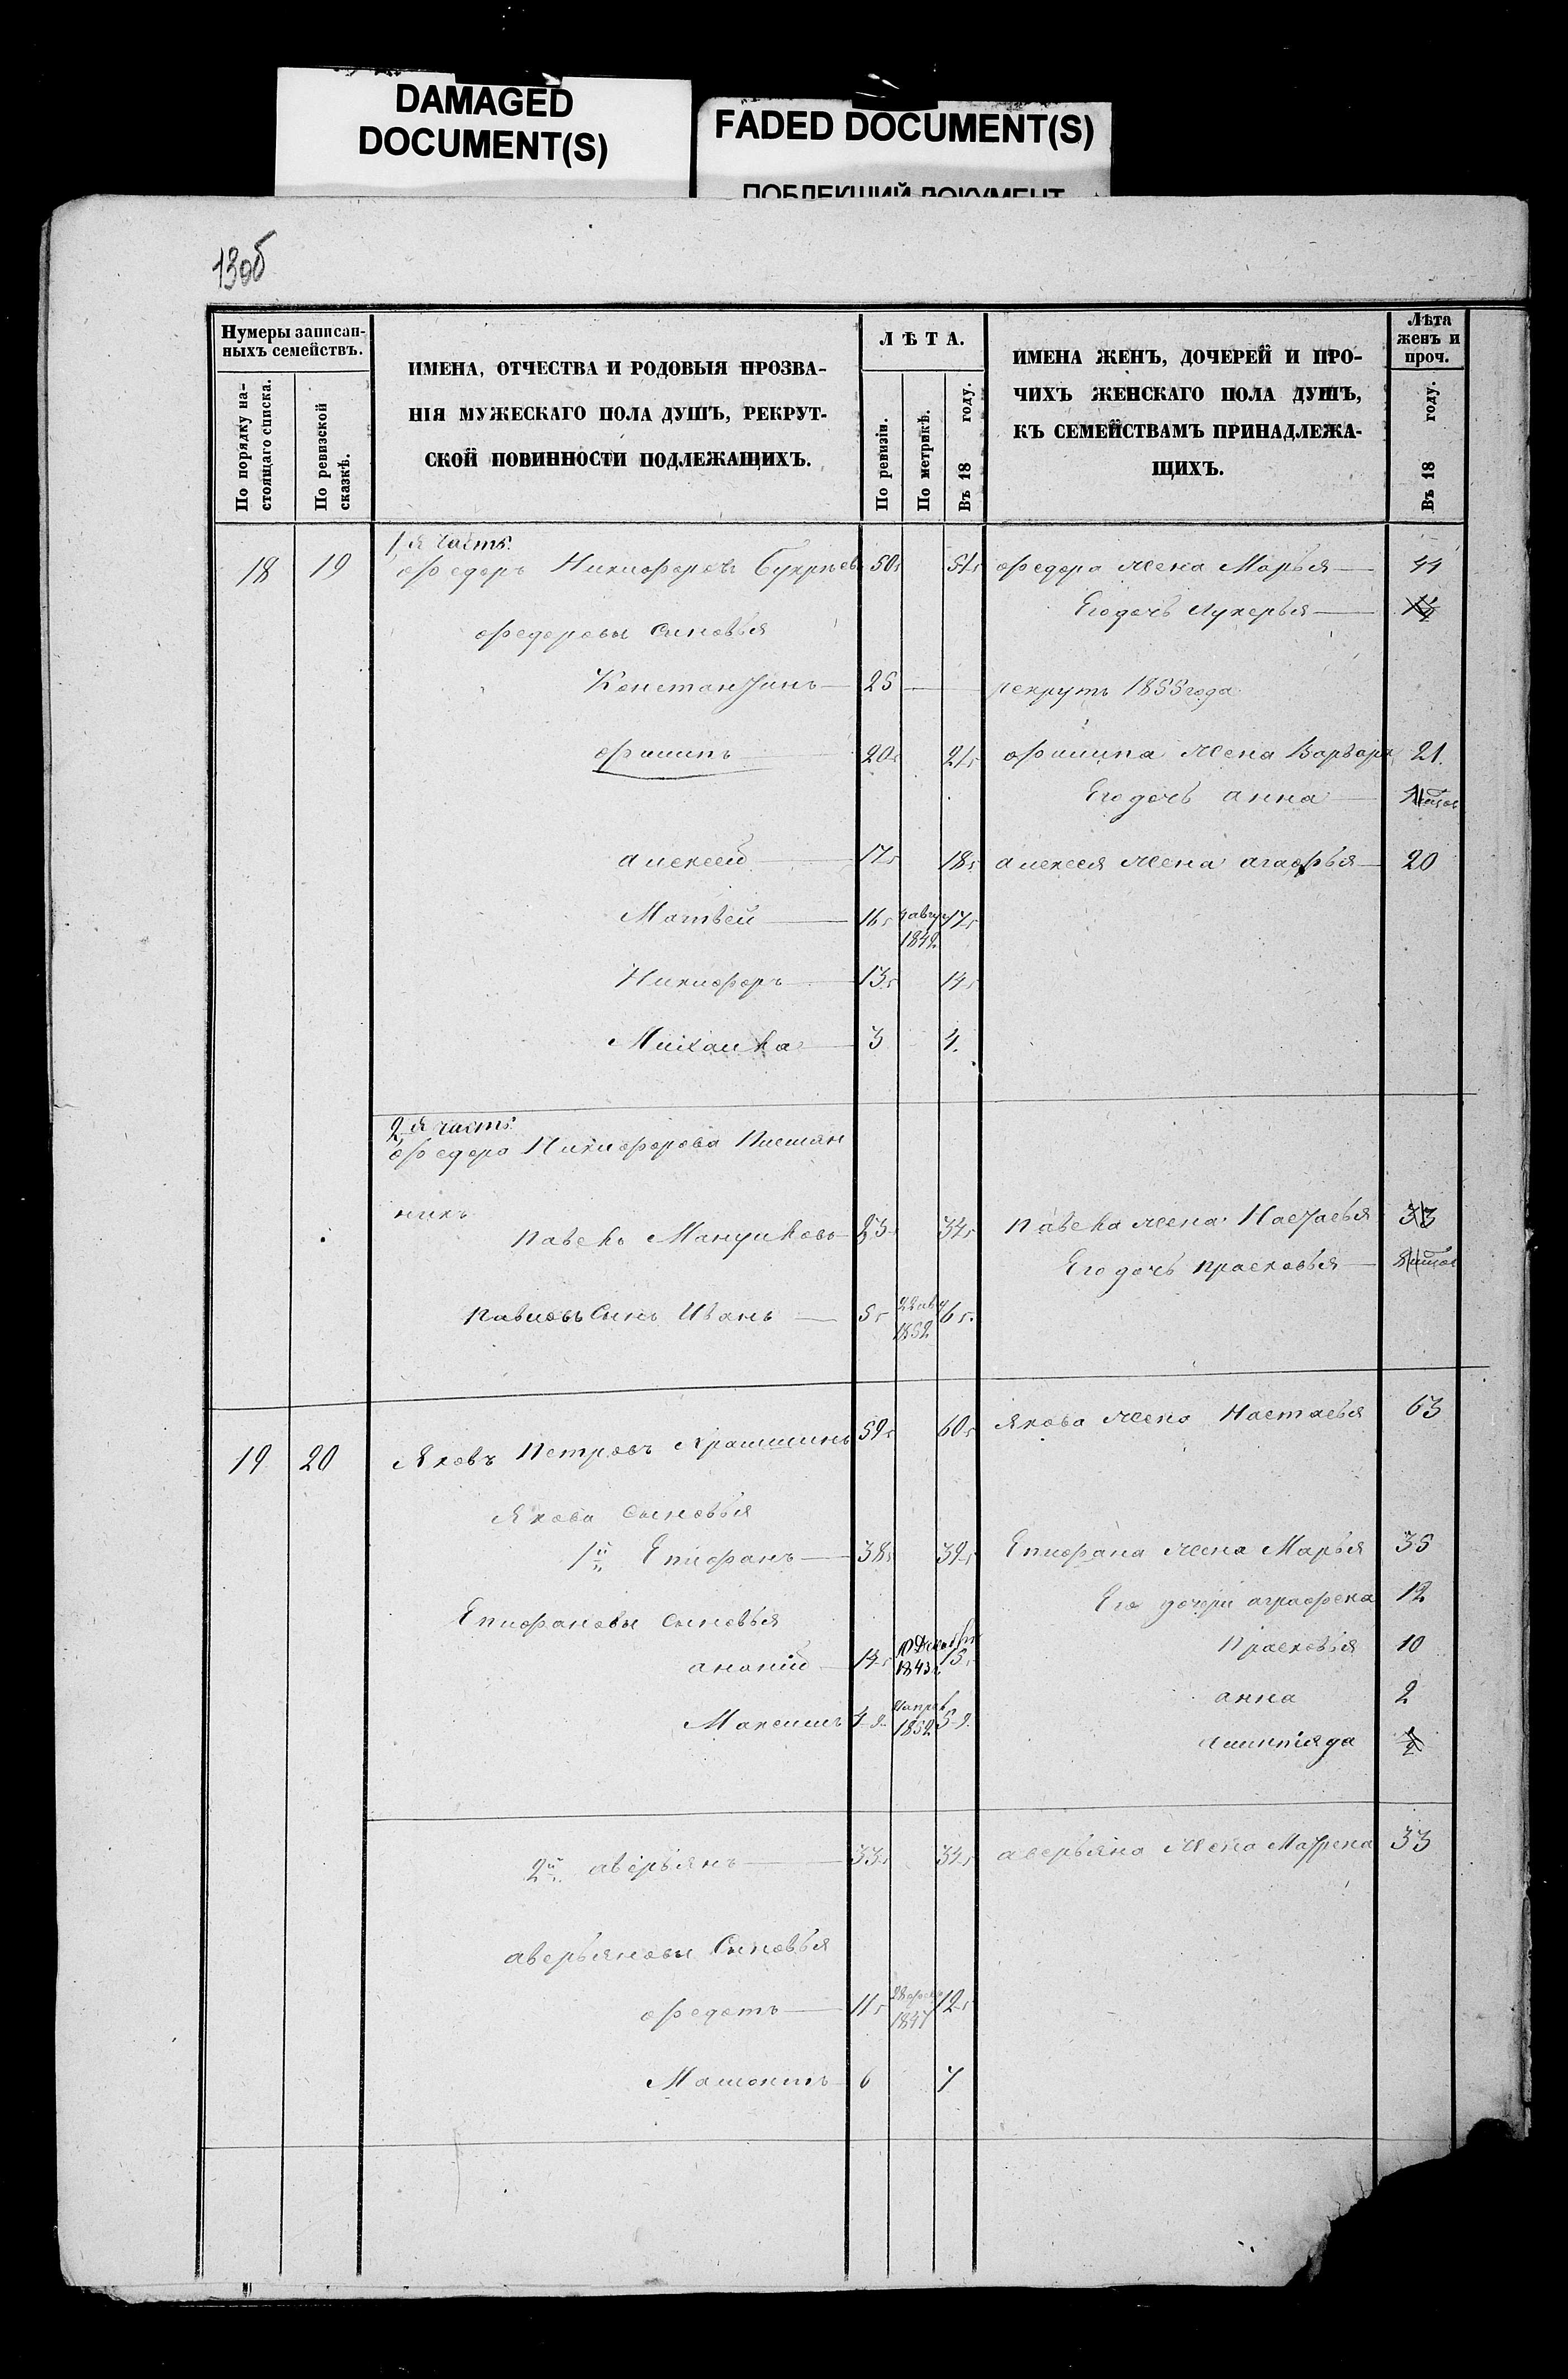 DAMAGED
DOCUMENT(S)
FADED DOCUMENT(S)
ПОБЛЕКШИЙ ДОКУМЕНТ
13об
Нумеры записан-
ныхъ семействъ.
По порядку на-
стоящаго списка.
По ревизской
сказкѣ.
ИМЕНА, ОТЧЕСТВА И РОДОВЫЯ ПРОЗВА-
НІЯ МУЖЕСКАГО ПОЛА ДУШЪ, РЕКРУТ-
СКОЙ ПОВИННОСТИ ПОДЛЕЖАЩИХЪ.
ЛѢТА.
По ревизіи.
По метрикѣ.
Въ 18 году.
ИМЕНА ЖЕНЪ, ДОЧЕРЕЙ И ПРО-
ЧИХЪ ЖЕНСКАГО ПОЛА ДУШЪ,
КЪ СЕМЕЙСТВАМЪ ПРИНАДЛЕЖА-
ЩИХЪ.
Лѣта
женъ и
проч.
Въ 18 году.
1я часть.
18 19 Федоръ Никифоровъ 50 51 Федора жена Марья 44
Его дочь Лукерья
Федоровы сыновья
Константинъ 25 рекрутъ 1855 года
Филипъ 20 21 Филипа жена Варвара 21.
Его дочь анна
алексей 17 18 алексея жена агафья 20
Матвей 16 4 авгу 17
1842
Никифоръ 13 14
Михаила 3 4.
2я часть.
Федора Никифорова Племян
никъ
Павелъ Мануиловъ 23 34 Павела жена Настасья 33
Его дочь Прасковья
Павловъ Сынъ Иванъ 5 22 авгу 6
1852
19 20 Яковъ Петровъ 59 60 Якова жена Настасья 63
Якова сыновья
1й Епифанъ 38 39 Епифана жена Марья 35
Его дочери аграфена 12
Епифановы сыновья
Прасковья 10
ананiй 14 10 Декабря 15
1843
анна 2
Максимъ 4 апрел 5
1852
2й аверьянъ 33 34 аверьяна жена Матрена 33
аверьяновы Сыновья
Федотъ 11 28 февр 12
1847
6 7